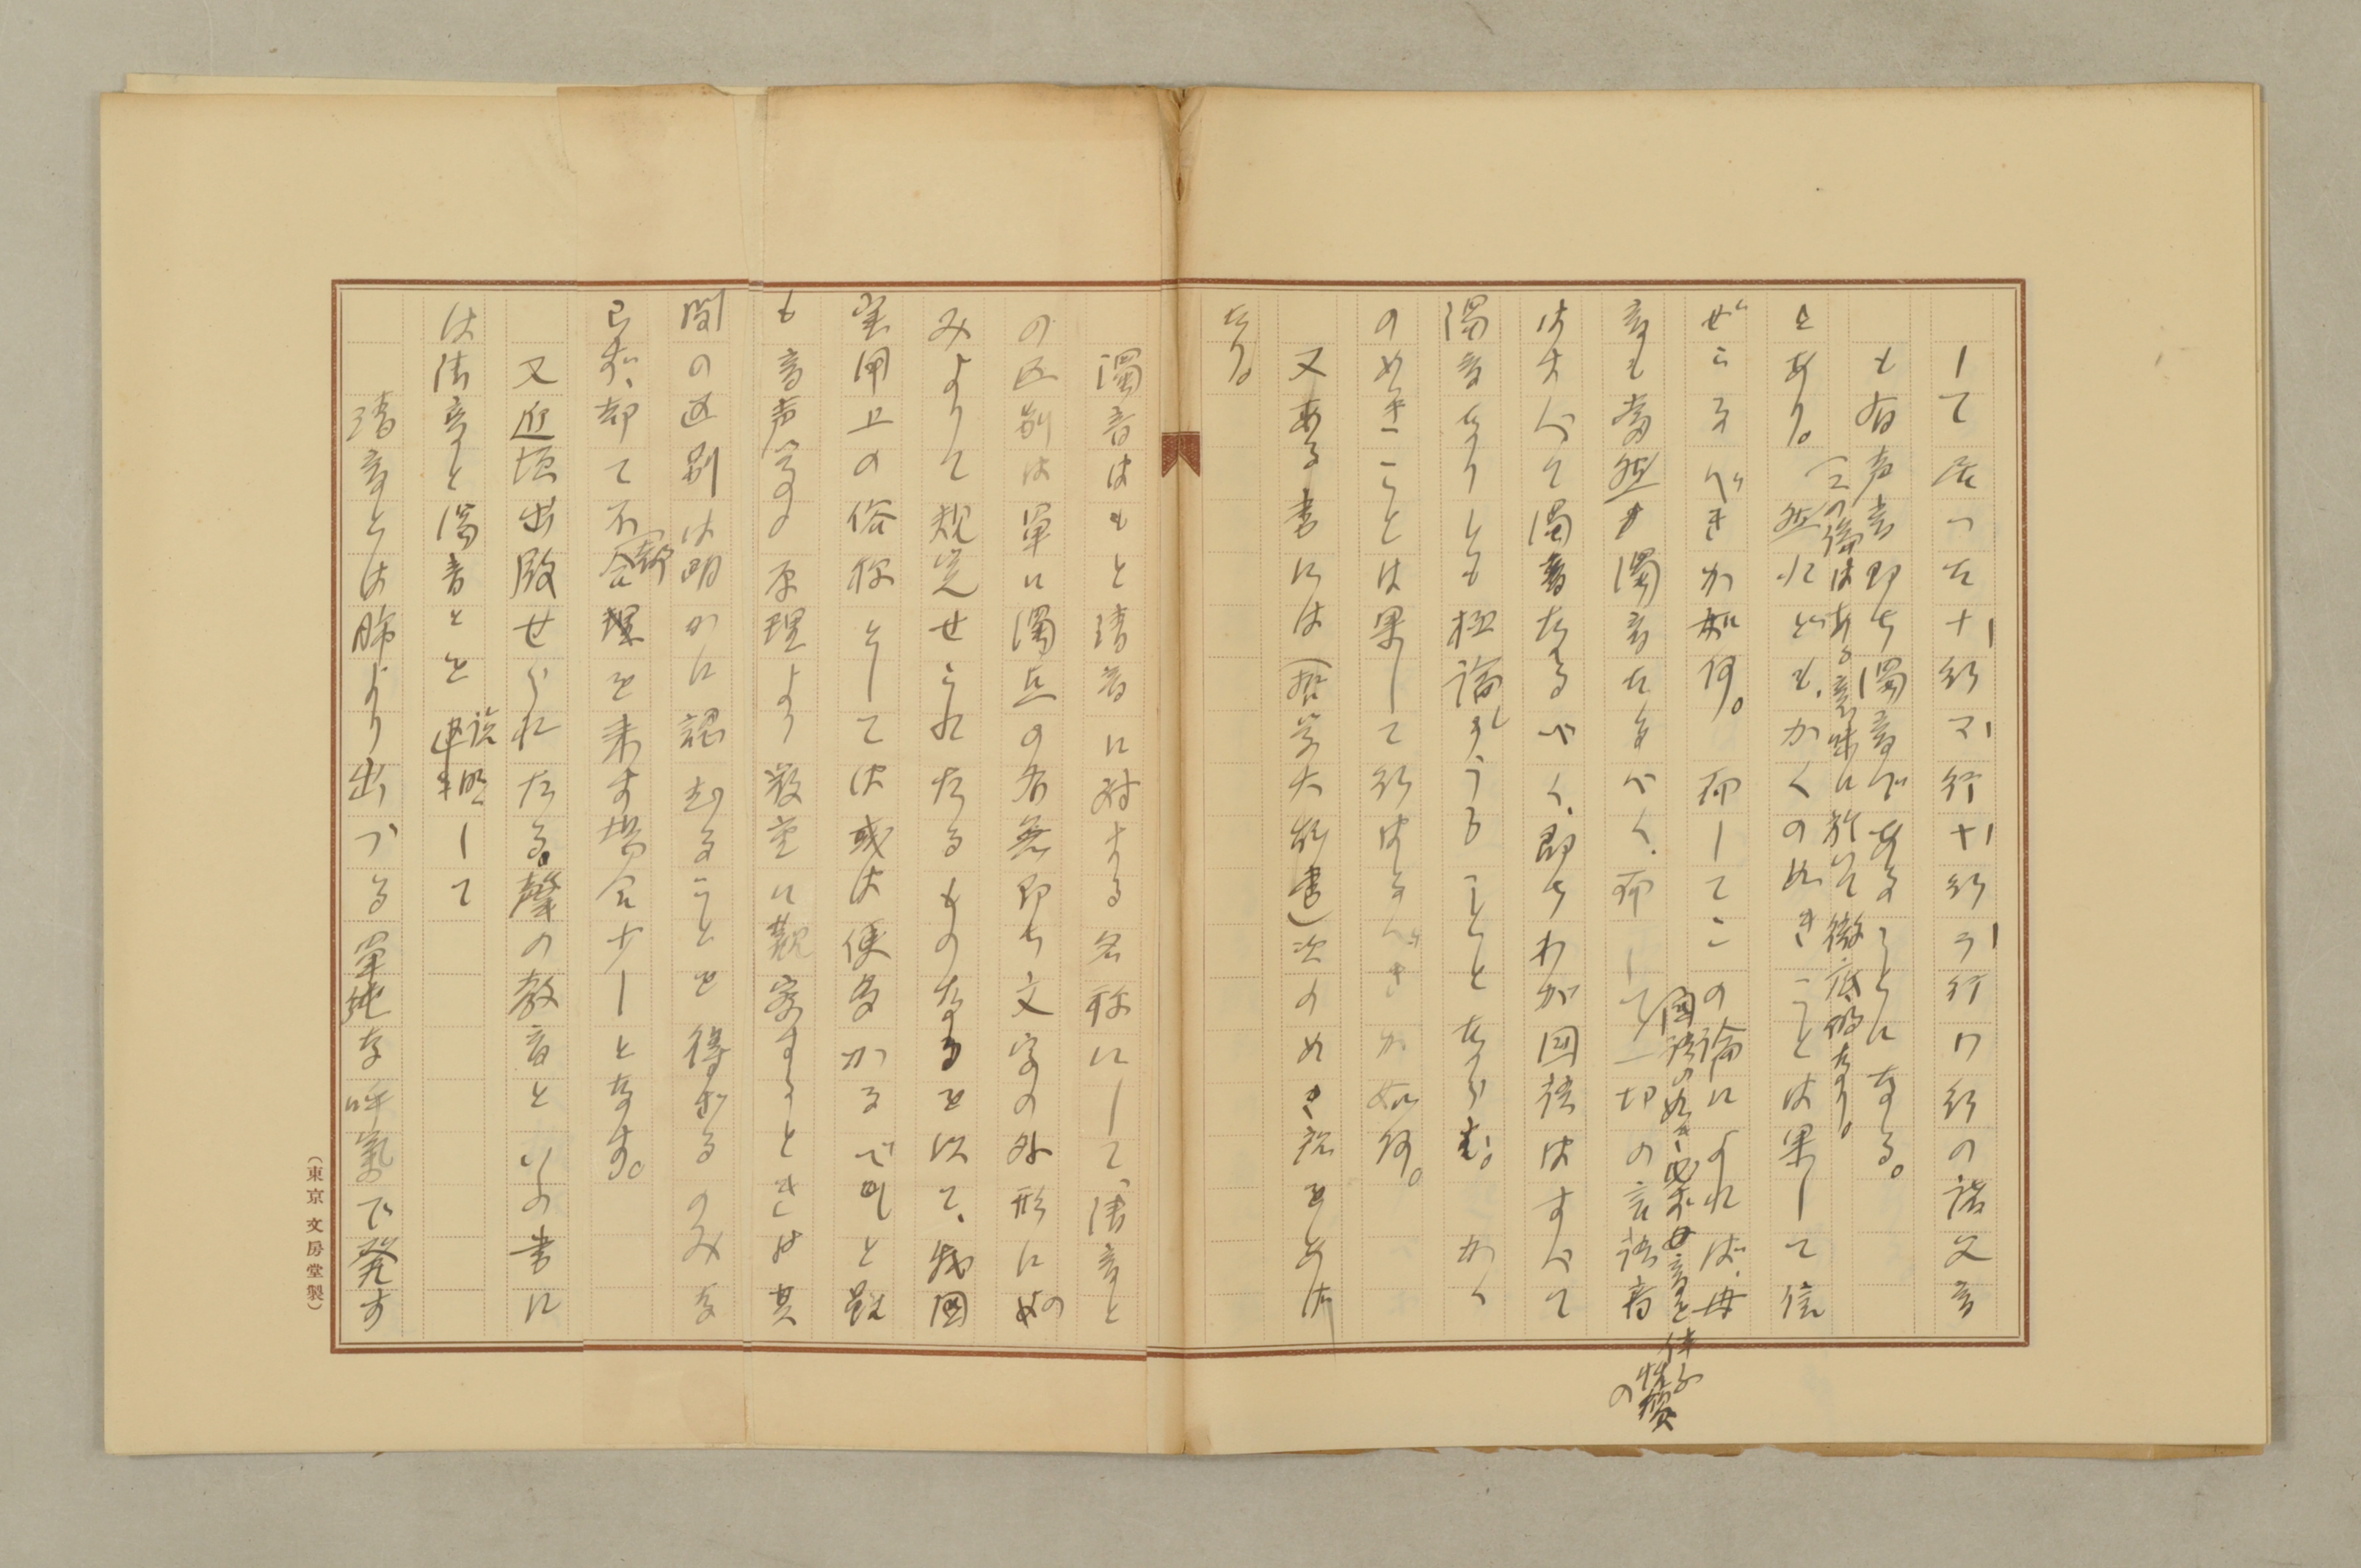 して居つたナ行マ行ヤ行ラ行ワ行の諸父音
も有声音即ち濁音であることになる。
とあり。然れども、かくの如きことは果して信
(この論はある意味に於て徹底的なり。
ぜらるべきか如何。而してこの論によれば、母
音も当然濁音なるべく、而して一切の言語音
国語の如き必ず母音を伴ふ
性質の
はすべて濁音なるべく、即ちわが国語はすべて
濁音なりとも極論しうることとならむ。かく
のめきことは果して行はるべきか如何。
又ある書には(哲学大辞書)次のめき説をあげ
たり。
濁音はもと清音に対する名称にして、清音と
の区別は単に濁点の有無即ち文字の外形にの
みよりて規定せられたるものなるを以て、我国
実用上の俗称としては或は便多かるべしと雖
も音声学の原理より厳密に観察するときは其
間の区別は明かに認むることを得ざるのみな
らず、却て不合理を来す場合少しとなす。
又近頃出版せられたる聲の教育といふ書に
は清音と濁音とを説明して
清音とは肺より出づる単純な呼気で発す
(東京 文房堂製)